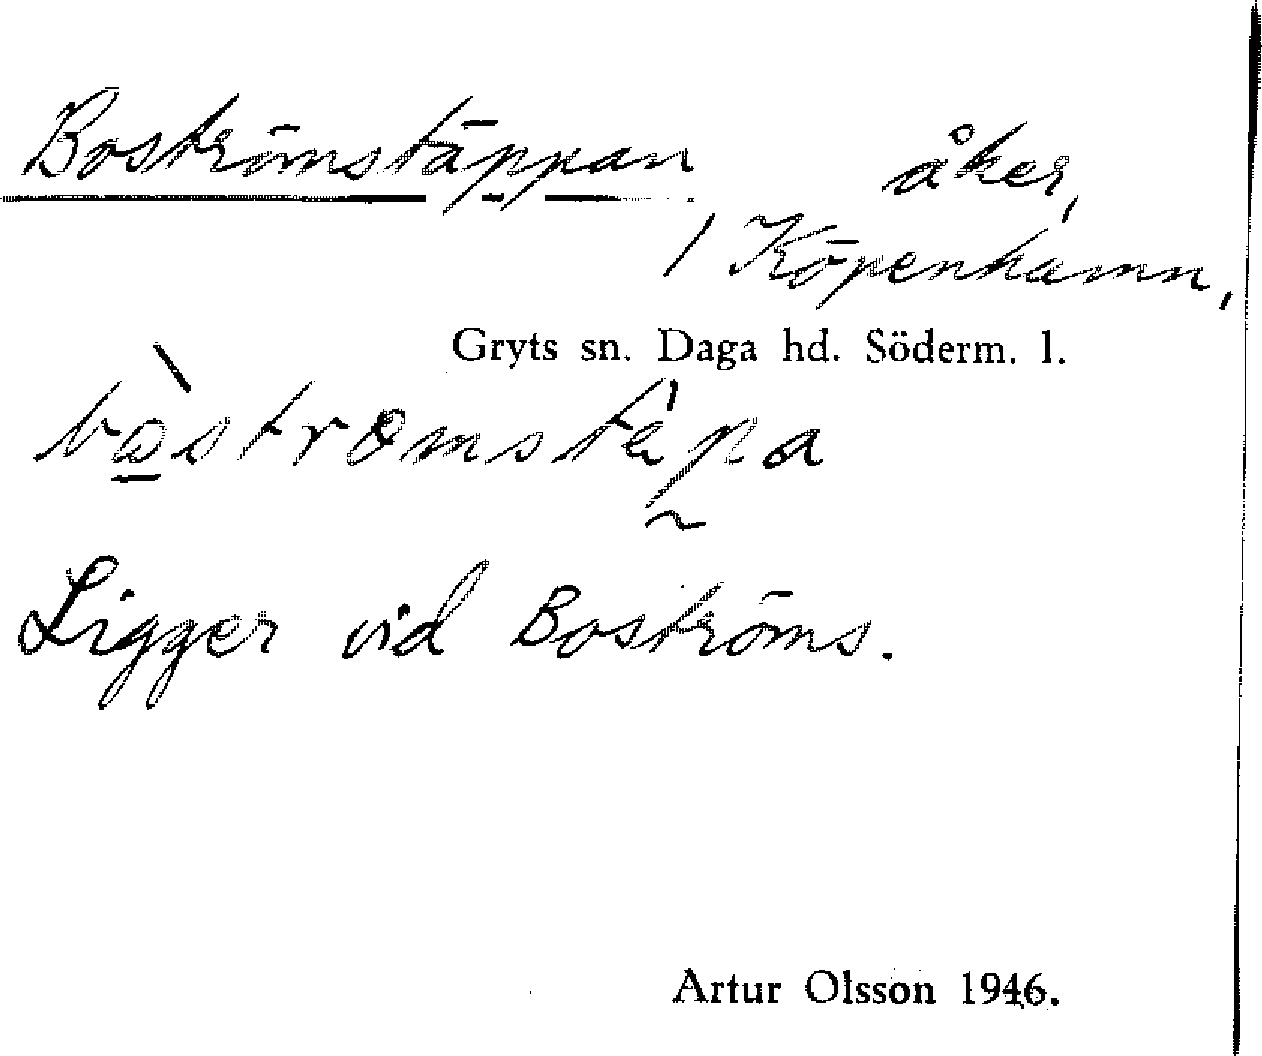 Boströmstäppan åker,
/ Köpenhamn,
Gryts sn. Daga hd. Söderm. l.
bò̲strømstépa
Ligger vid Boströms.
Artur Olsson 1946.